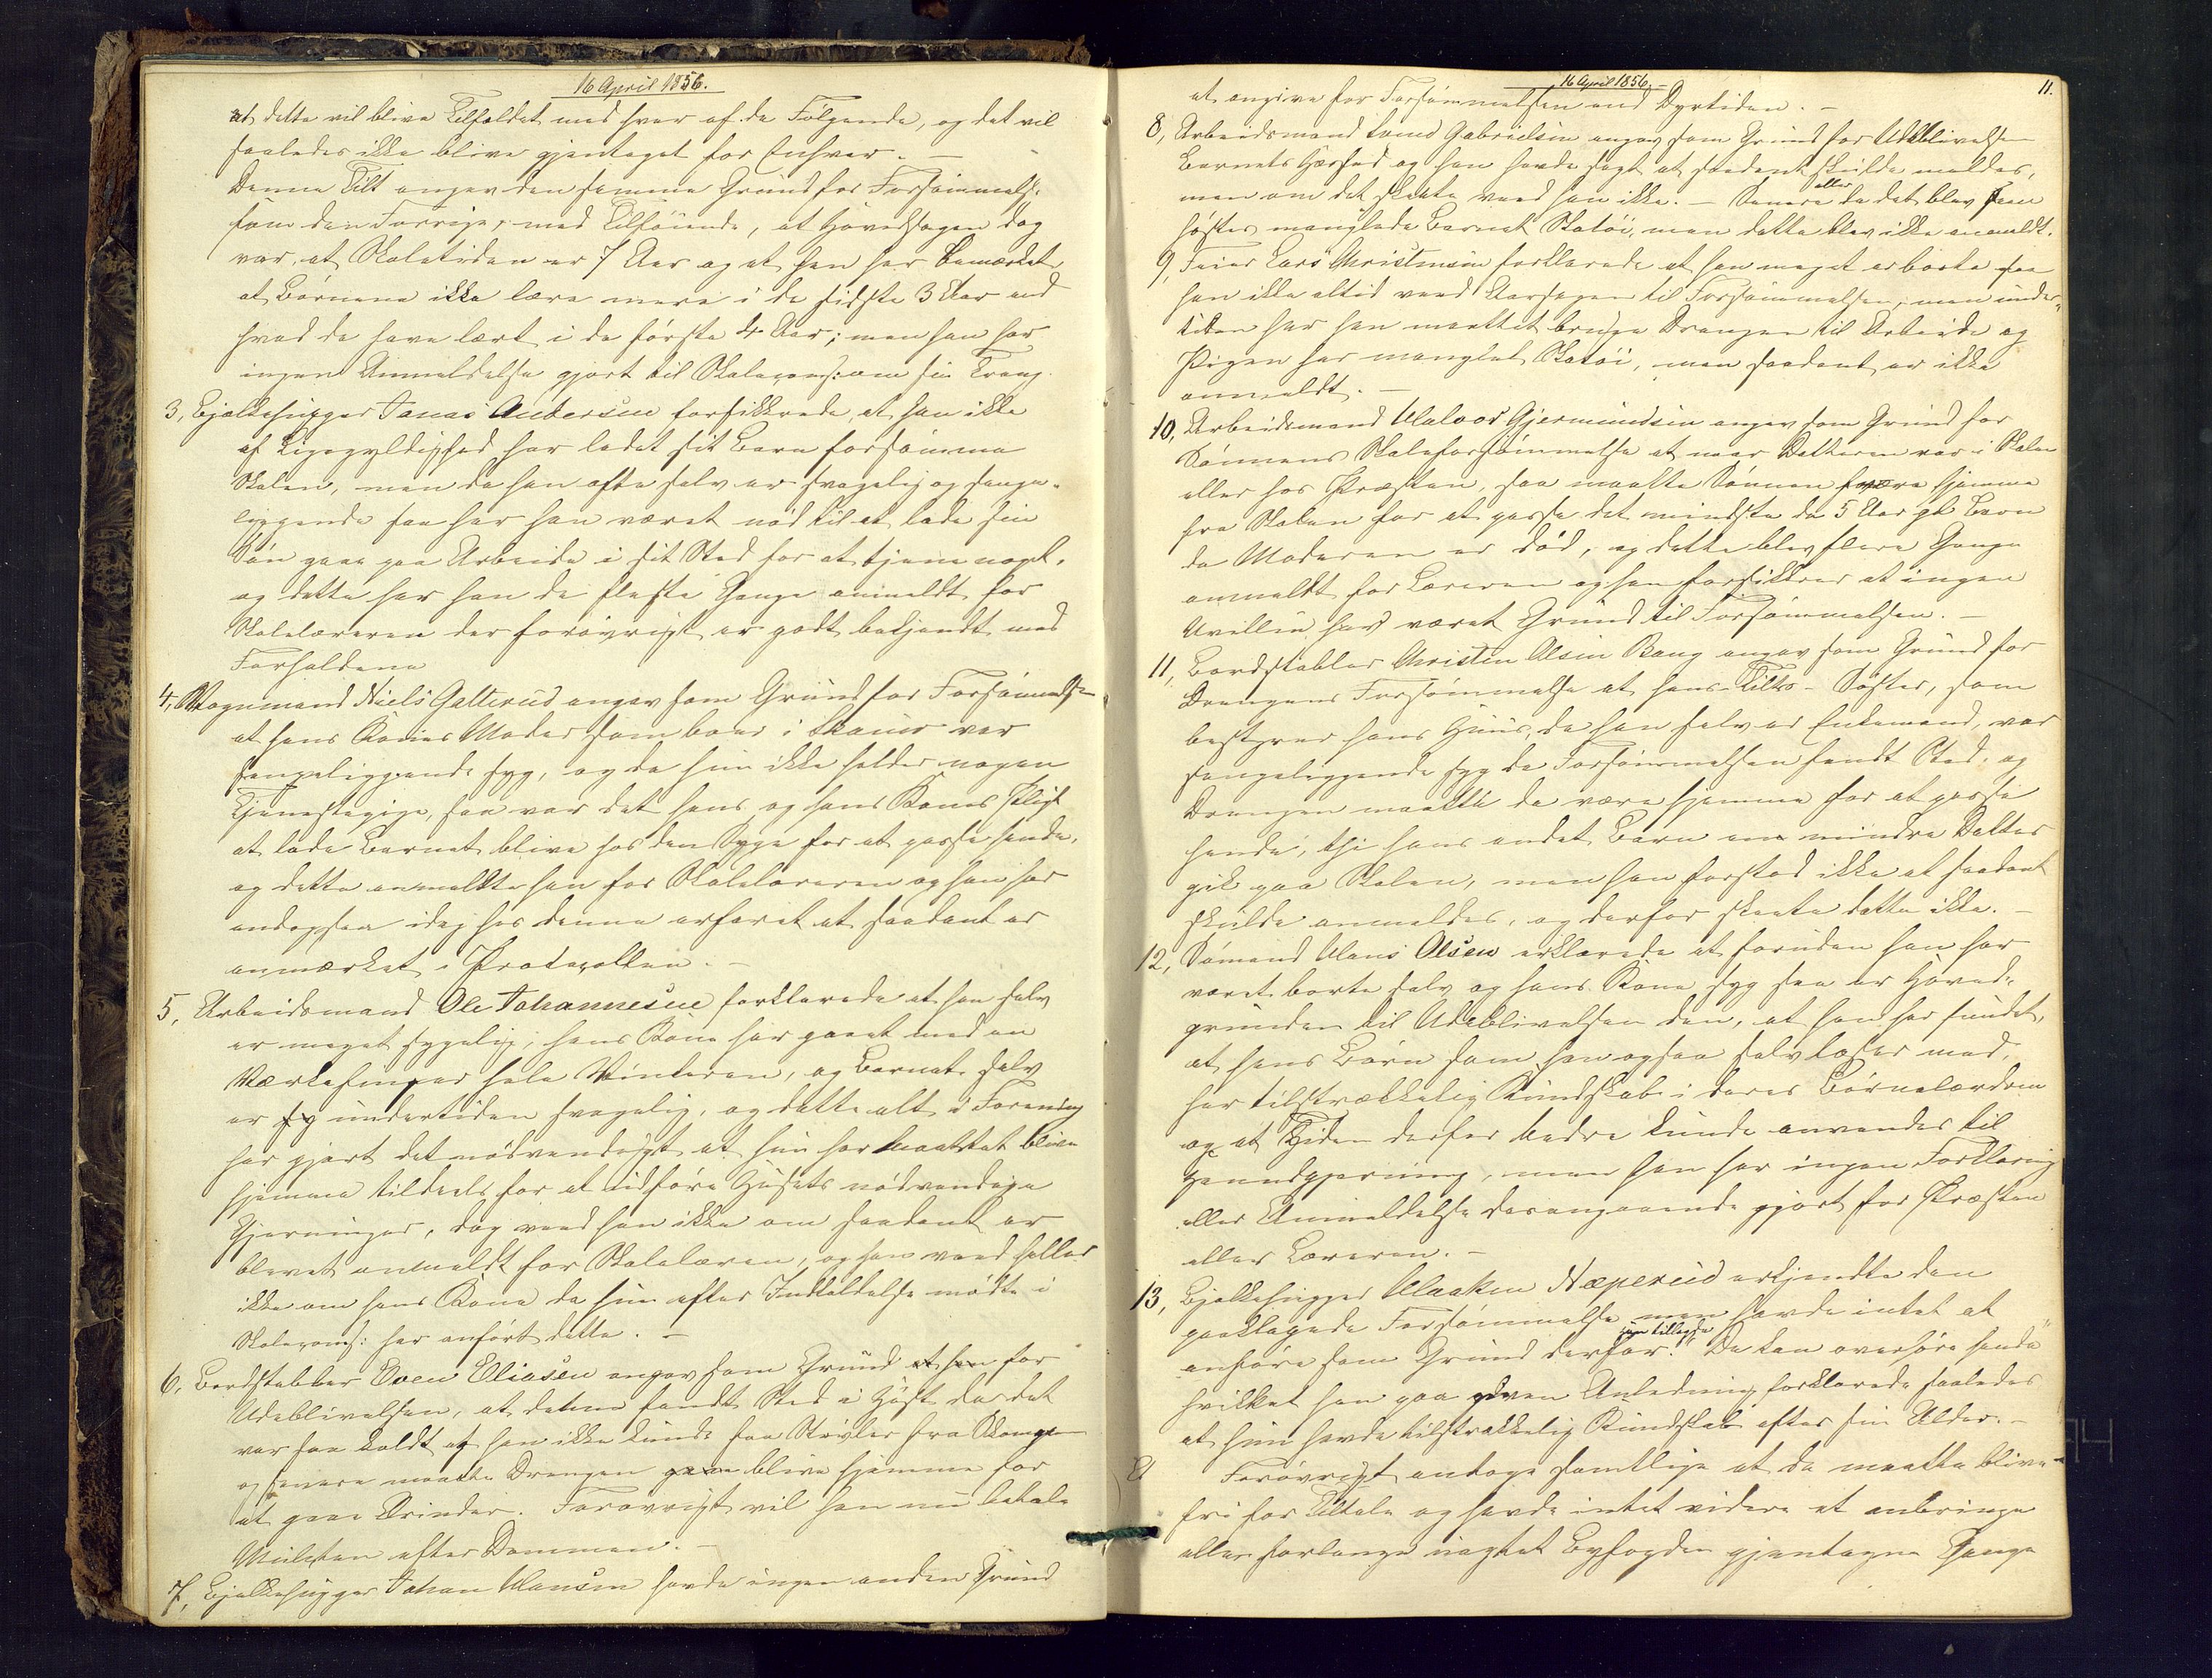 16 April 1856.
at dette vil blive Tilfældet med hver af de Følgende, og det vil
saaledes ikke blive gjentaget for Enhver. —
Denne Tilt angav den samme Grund for Forsømmels:
som den Forrige, med Tilføiende, at Hovedsagen dog
var, at Skoletiden er 7 Aar og at han har bemærket
at Børnene ikke lære mere i de sidste 3 Aar end
hvad de have lært i de første 4 Aar; men han har
ingen Anmeldelse gjort til Skolecoms: om sin Trang.
3, Bjelkehugger Jonas Andersen forsikkrede, at han ikke
af Ligegyldighed har ladet sit Barn forsømme
Skolen, men da han ofte selv er svagelig og senge-
liggende saa har han været nød til at lade sin
Søn gaae paa Arbeide i sit Sted for at tjene noget.
og dette har han de fleste Gange anmeldt for
Skolelæreren der forøvrigt er godt bekjendt med
Forholdene
4, Vognmand Niels Galterud angav som Grund for Forsømmelsen
at hans Kones Moder som boer i Skauer var
sengeliggende syg, og da hun ikke holder nogen
Tjenestepige, saa var det hans og hans Kones Pligt
at lade Barnet blive hos den Syge for at passe hende,
og dette anmeldte han for Skolelæreren og han har
endogsaa idag hos denne erfaret at saadant er
anmærket i Protocollen. —
5, Arbeidsmand Ole Johannesen forklarede at han selv
er meget sygelig, hans Kone har gaaet med en
Værkefinger hele Vinteren, og Barnet selv
er sy undertiden svagelig, og dette alt i Forening
har gjort det nødvendigt at hun har maattet blive
hjemme tildeels for at udføre Husets nødvendige
Gjerninger, dog veed han ikke om saadant er
blevet anmeldt for Skolelæren, og han veed heller
ikke om hans Kone da hun efter Indkaldelse mødte i
Skolecoms: har anført dette. —
6, Bordstabler Even Eliasen angav som Grund at han for
Udeblivelsen, at denne fandt Sted i Høst da det
var saa koldt at han ikke kunde faa Støvler fra Skomager
og senere maatte Drengen gaae blive hjemme for
at gaae Ærinder. Forøvrigt vil han nu betale
Mulcten efter Dommen. —
7, Bjelkehugger Johan Hansen havde ingen anden Grund
16 April 1856. —
11.
at angive for Forsømmelsen end Dyrtiden. —
8, Arbeidsmand Gabrielsen angav som Grund for Udeblivelsen
Barnets Hæshed og han havde sagt at saadant skulde meldes,
men om det skeete veed han ikke. — Senere da det blev
eller
høstes manglede Barnet Skotøi, men dette blev ikke anmeldt.
9, Feier Lars Christensen forklarede at han meget er borte saa
han ikke altid veed Aarsagen til Forsømmelsen, men under-
tiden har han maattet bruge Drengen til Arbeide og
Pigen har manglet Skotøi, men saadant er ikke
anmeldt. —
10, Arbeidsmand Halvor Gjermundsen angav som Grund for
Sønnens Skoleforsømmelse at naar Datteren var i Skolen
eller hos Præsten, saa maatte Sønnen være hjemme
fra Skolen for at passe det mindste da 5 Aar gl Barn
da Moderen er død, og dette blev flere Gange
anmeldt for Læreren og han forsikkrer at ingen
Uvillie har været Grund til Forsømmelsen. —
11, Bordstabler Christen Olsen Bang angav som Grund for
Drengens Forsømmelse at hans - Tiltes - Søster, som
bestyrer hans Huus, da han selv er Enkemand, var
sengeliggende syg da Forsømmelsen fandt Sted. og
Drengen maatte da være hjemme for at passe
hende, thi hans andet Barn en mindre Datter
gik paa Skolen, men han forstod ikke at saadant
skulde anmeldes, og derfor skeete dette ikke. —
12, Sømand Hans Olsen erklærede at foruden han har
været borte selv og hans Kone syg saa er Hoved-
grunden til Udeblivelsen den, at han har fundet,
at hans Børn som han ogsaa selv læser med,
har tilstrækkelig Kundskab i deres Børnelærdom
og at Tiden derfor bedre kunde anvendes til
Haandgjerning, men han har ingen Forklaring
eller Anmeldelse desangaaende gjort for Præsten
eller Læreren. —
13, Bjelkehugger Haaken Næperud erkjendte den
paaklagede Forsømmelse men havde intet at
anføre som Grund derfor. De kan overhøre hende
han tillagde
hvilket han paa given Anledning forklarede saaledes
at hun havde tilstrækkelig Kundskab efter sin Alder. —
Forøvrigt antoge samtlige at de maatte blive
fri for Tiltale og havde intet videre at anbringe
eller forlange uagtet Byfogden gjentagne Gange